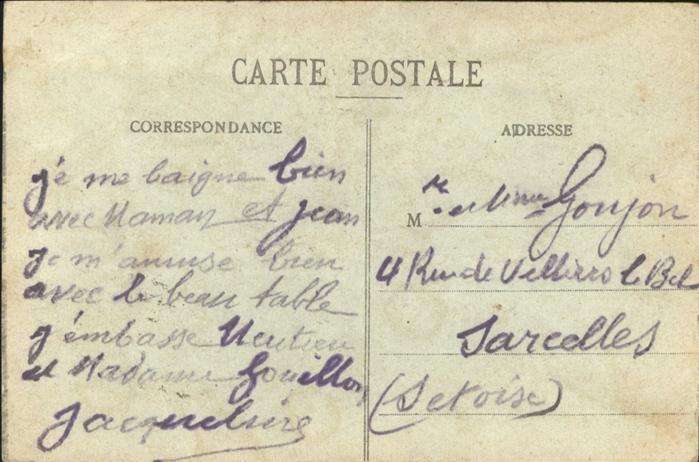 CARTE POSTALE
CORRESPONDANCE
je me baigne bien
avec Maman et Jean
je m'amuse bien
avec le beau table
j'embasse
et Madame Goujllon
Jacqueline
ADRESSE
M r et Mme Goujon
4 Rue de Villiers le Bel
Sarcelles
(S et Oise)